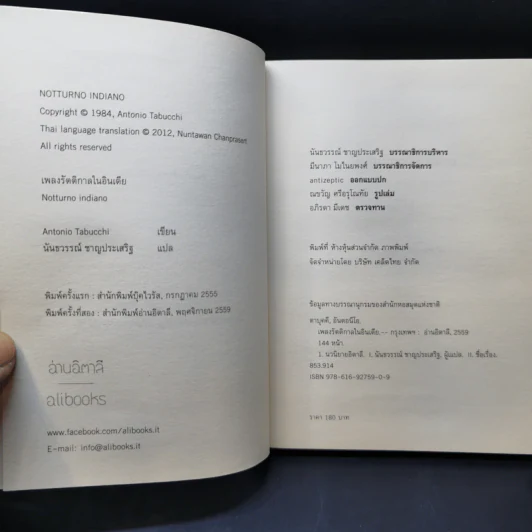 NOTTURNO INDIANO
Copyright © 1984, Antonio Tabucchi
Thai language translation © 2012, Nuntawan Chanprasert
All rights reserved
เพลงรัตติกาลในอินเดีย
Notturno indiano
Antonio Tabucchi เขียน
นันธวรรณ์ ชาญประเสริฐ แปล
พิมพ์ครั้งแรก : สำนักพิมพ์บุ๊คไวรัส, กรกฎาคม 2555
พิมพ์ครั้งที่สอง : สำนักพิมพ์อ่านอิตาลี, พฤศจิกายน 2559
อ่านอิตาลี
alibooks
www.facebook.com/alibooks.it
E-mail: info@alibooks.it
นันธวรรณ์ ชาญประเสริฐ บรรณาธิการบริหาร
มีนาภา ไมไนยพงศ์ บรรณาธิการจัดการ
antizeptic ออกแบบปก
ณขวัญ ศรีอรุโณทัย รูปเล่ม
อภิรดา มีเดช ตรวจทาน
พิมพ์ที่ ห้างหุ้นส่วนจำกัด ภาพพิมพ์
จัดจำหน่ายโดย บริษัท เคล็ดไทย จำกัด
ข้อมูลทางบรรณานุกรมของสำนักหอสมุดแห่งชาติ
ตาบุคคี, อันตอนีโอ.
เพลงรัตติกาลในอินเดีย.-- กรุงเทพฯ : อ่านอิตาลี, 2559
144 หน้า.
1. นวนิยายอิตาลี. I. นันธวรรณ์ ชาญประเสริฐ, ผู้แปล. II. ชื่อเรื่อง.
853.914
ISBN 978-616-92759-0-9
ราคา 180 บาท